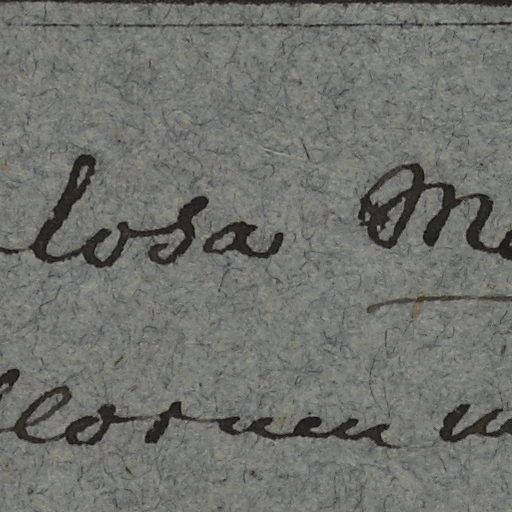 losa Me
llorum u